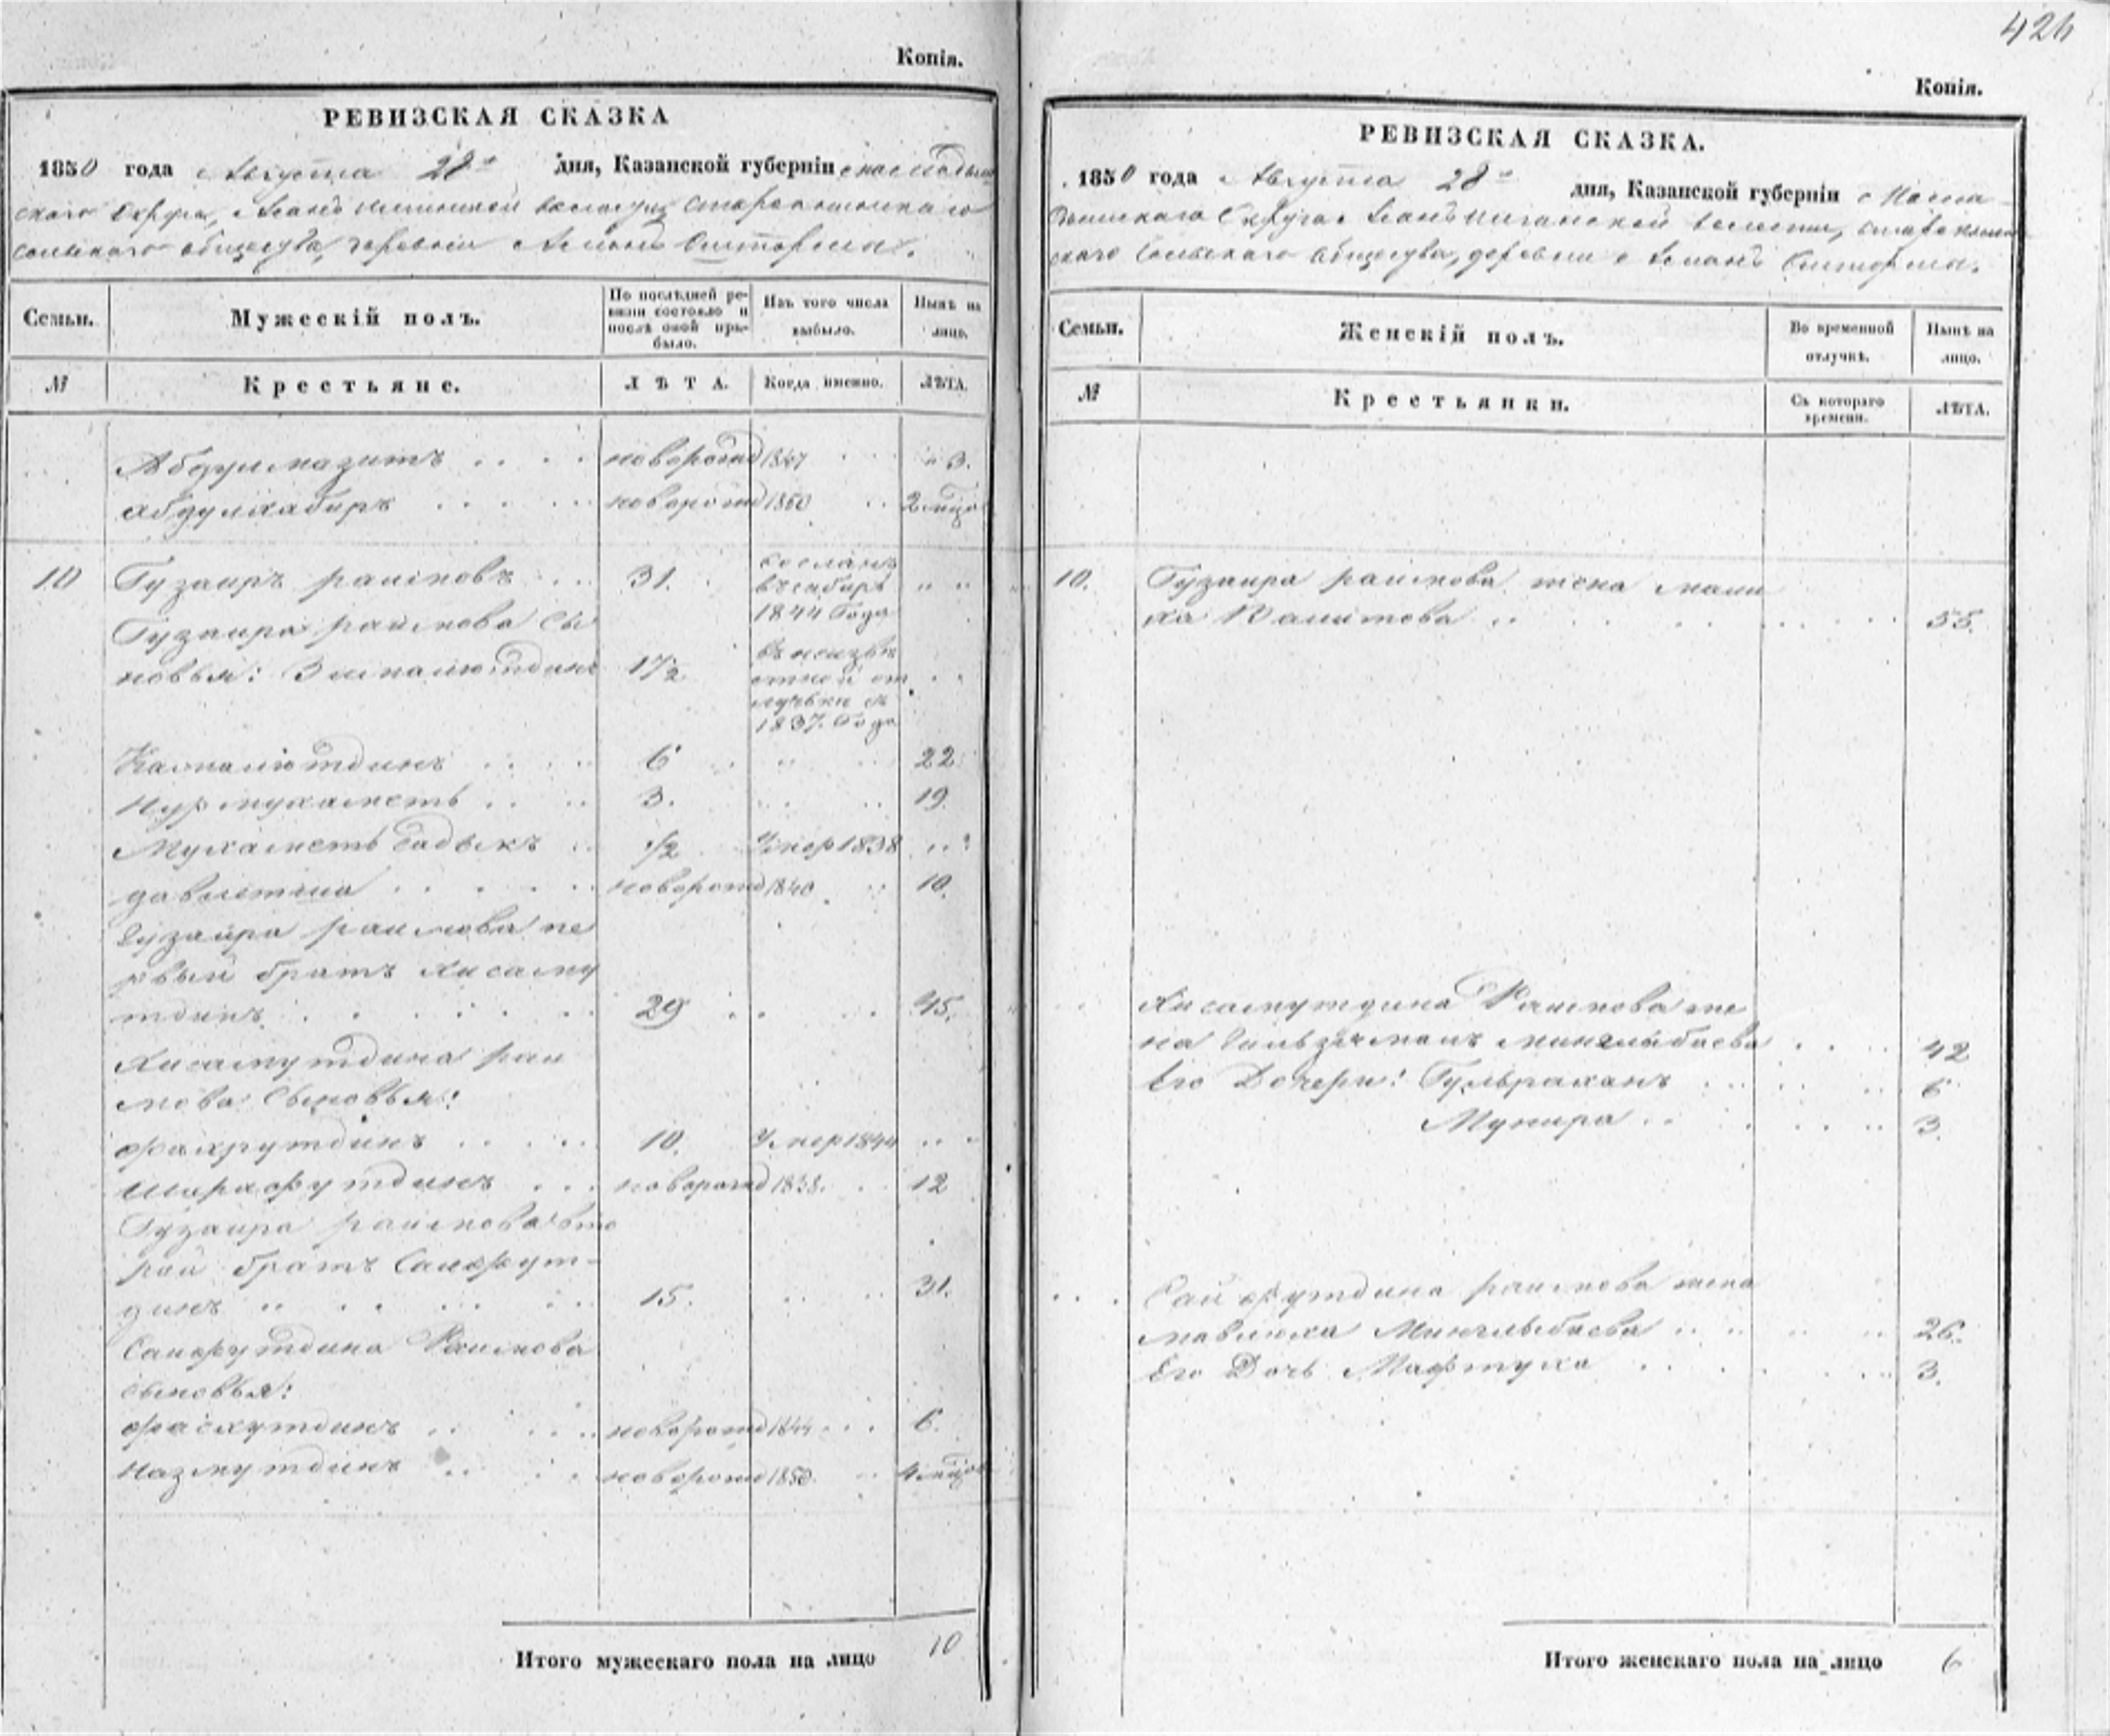 Копія.
РЕВИЗСКАЯ СКАЗКА
1850 года Августа 28го дня, Казанской губерніи
скаго Округа, волости
сельскаго общества, деревни
Семьи. Мужескій полъ. По послѣдней ревизіи состояло и послѣ оной прибыло. Изъ того числа выбыло. Нынѣ на лицо.
№ Крестьяне. ЛѢТА. Когда именно. ЛѢТА.
новорожд 1847 3.
Абдулхабиръ новорожд 1850 2 мѣца
10 Гузаиръ раимовъ 31. сосланъ въ сибирь 1844 Года
Гузаира раимова Сы
новья: 17½ въ неизвѣстной отлучьки съ 1837. Года
Камалютдинъ 6 22
Нурмухаметь 3. 19
Мухаметь Садыкъ ½ Умер 1838
давлетша новорожд 1840 10.
Гузаира раимова пе
рвый братъ Хисаму
тдинъ 29 45.
Хисамутдина раи
мова Сыновья:
Фахрутдинъ 10. Умер 1844
Шарафутдинъ новорожд 1838. 12
Гузаира раимова вто
рой братъ Саифут-
динъ 15. 31.
Саифутдина Раимова
сыновья:
новорожд 1844 6.
Назмутдинъ новорожд 1850 4 мѣца
Итого мужескаго пола на лицо 10
426
Копія.
РЕВИЗСКАЯ СКАЗКА.
1850 года Августа 28го дня, Казанской губерніи Спасса
Округа волости,
скаго Сельскаго общества, деревни
Семьи. Женскій полъ. Во временной отлучкѣ. Нынѣ на лицо.
№ Крестьянки. Съ котораго времени. ЛѢТА.
10. Гузаира раимова жена Мали
ха 55.
Хисамутдина Раимова же
на 42
Его Дочери: Гульрахань 6
Мунира 3.
Сайфутдина раимова жена
26.
Его Дочь Мафтуха 3.
Итого женскаго пола на лицо 6